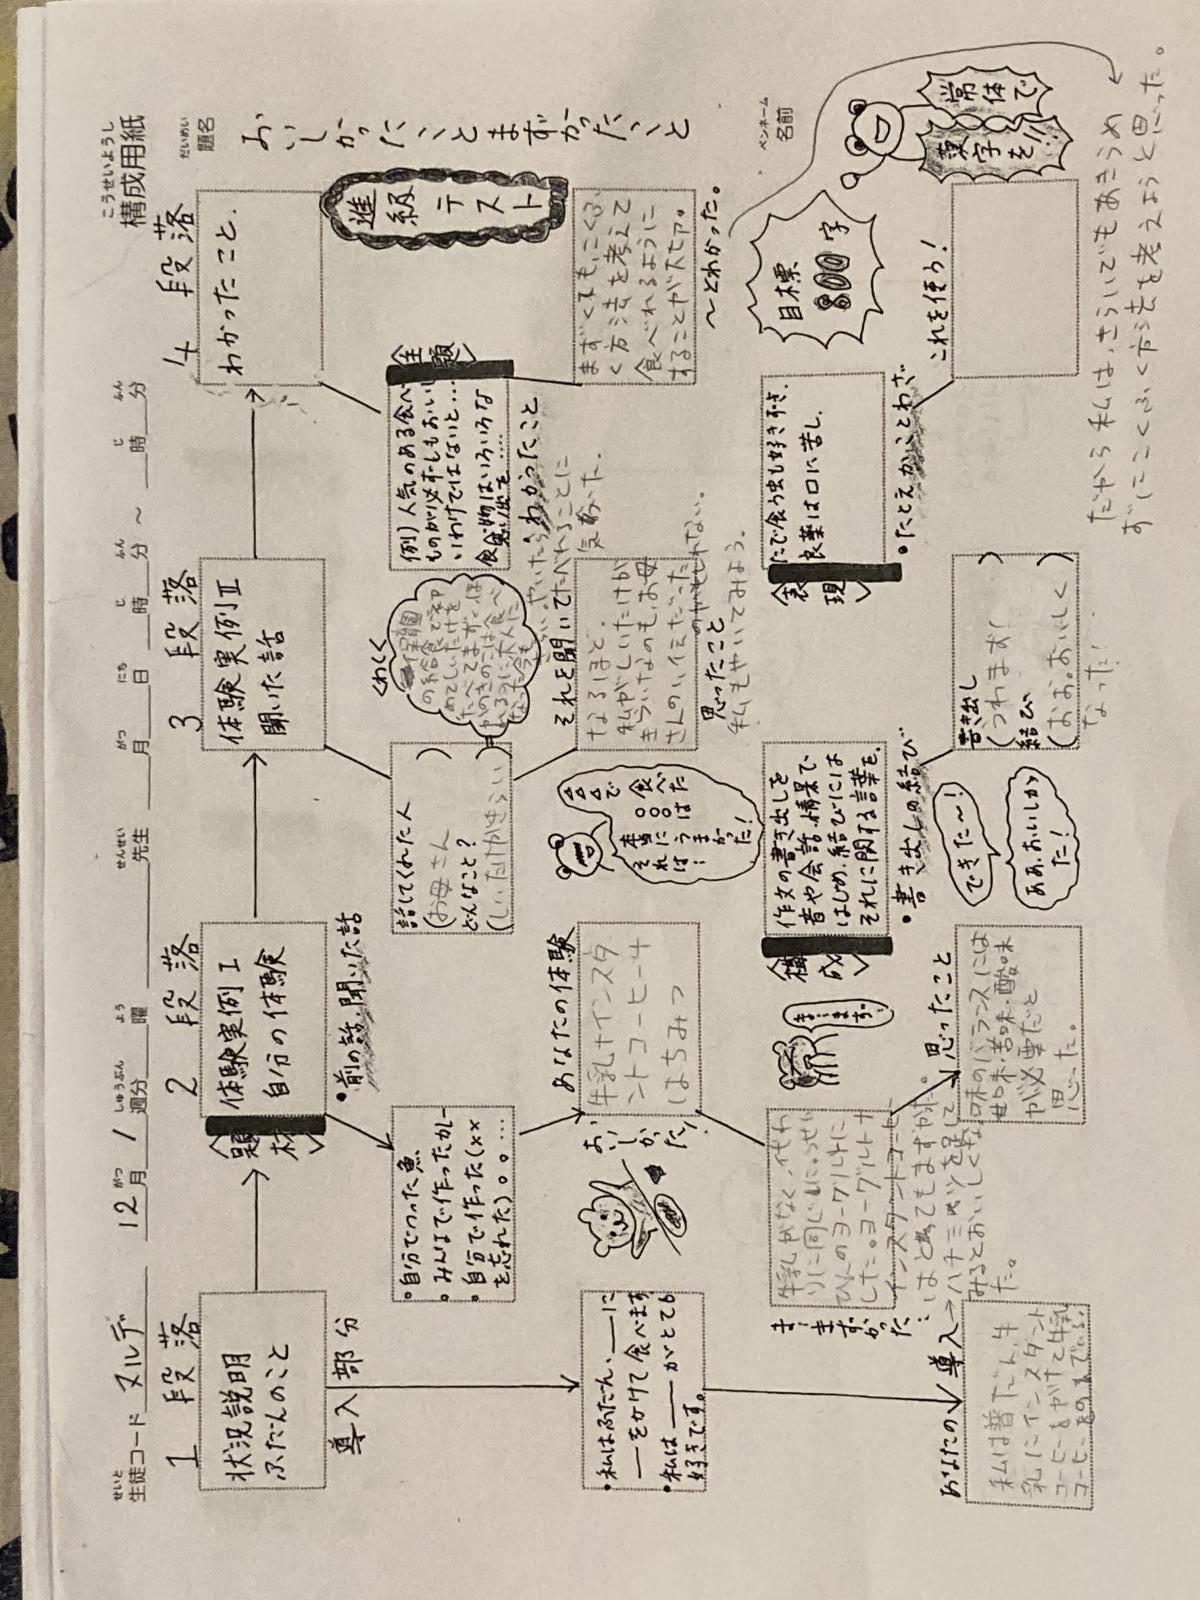 こうせいようし
構成用紙
せいと
生徒コード ヌルデ 12月 1週分 曜 先生 月 日 時 分 ～ 時 分
がつ しゅうぶん よう せんせい がつ にち じ ふん じ ふん
だいめい
題名
おいしかったことまずかったこと
ペンネーム
名前
1段落
状況説明
ふだんのこと
導入部分
・私はふだん、__に
__をかけて食べます
・私は__がとても
好きです。
あなたの導入→
私は普だん、牛
乳にインスタント
コーヒーをかけて牛乳
2段落
<題材>
体験実例Ⅰ
自分の体験
・前の話、聞いた話
・自分でつった魚
・みんなで作ったカレー
・自分で作った(××
を忘れた)○○……
おいしかった!
あなたの体験
牛乳+インスタ
ントコーヒー+
はちみつ
ま…まずかった…
牛乳がなく、代わ
りに同じ
ヨーグルトに
した。ヨーグルト+
インスタントコーヒー
はとてもまずかった。
ハチミツを足して
みるとおいしくな
った。
ま…まずい
思ったこと
味のバランスには
甘味・苦味・酸味
が必要だと
思った。
3段落
体験実例Ⅱ
聞いた話
話してくれた人
(お母さん)
どんなこと?
(しいたけがきらい)
くわしく
保育園
の給食で初
めてしいたけを
たべてまずく、ほ
かのきのこは食べ
れるのに大人に
なった今も
それを聞いて
なるほど。
私がしいたけが
きらいなのも、お母
さんのいでんだった
のかもしれない。
思ったこと
私もやいてみよう。
やいたらたべれることに
気づいた。
△△△で食べた
○○○は
本当にうまかった!
それは…
<構成>
作文の書き出しを
音や会話、情景で、
はじめ、結びには
それに関する言葉を。
・書き出しの結び
できた～!
ああ、おいしかっ
た!
書き出し
結び
(おお。おいしく
なった!)
4段落
わかったこと.
進級テスト
<主題>
例)人気のある食べ
ものが必ずしもおいし
いわけではないと…
食べ物はいろいろな
思い出を……
わかったこと
まずくてもにこくふ
く方法を考えて
食べれるように
することが大せつ。
～とわかった。
<表現>
たで食う虫も好き好き.
良薬は口に苦し.
・たとえかことわざ
これを使ろ!
目標
800字
常体で
漢字を!!
だから私は、きらいでもあきらめ
ずにこくふく方法を考えようと思った。